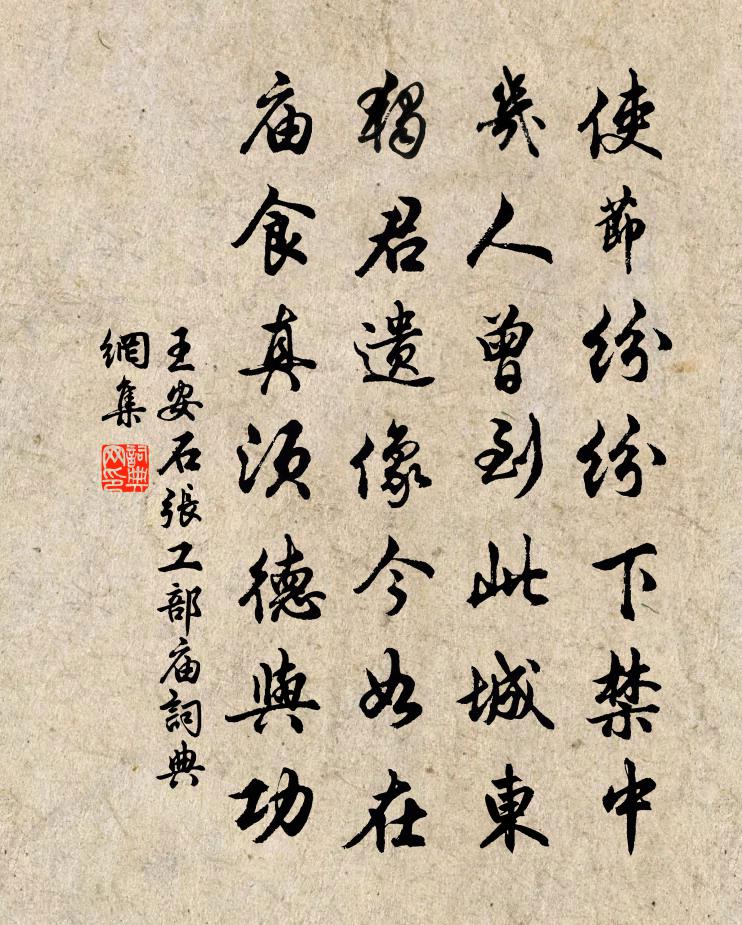 使節紛紛下禁中
幾人曾到此城東
獨君遺像今如在
庙食真須德與功
王安石張工部庙詞典
網集
詞典網印